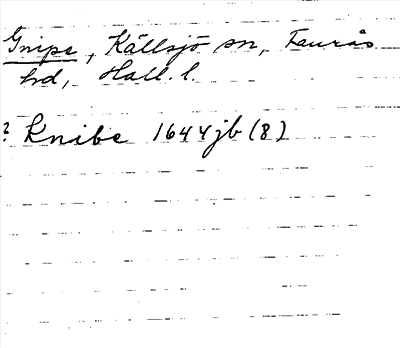 Gnipe, Källsjö sn, Faurås
hd, Hall. l.
? Knibe 1644 jb (8)